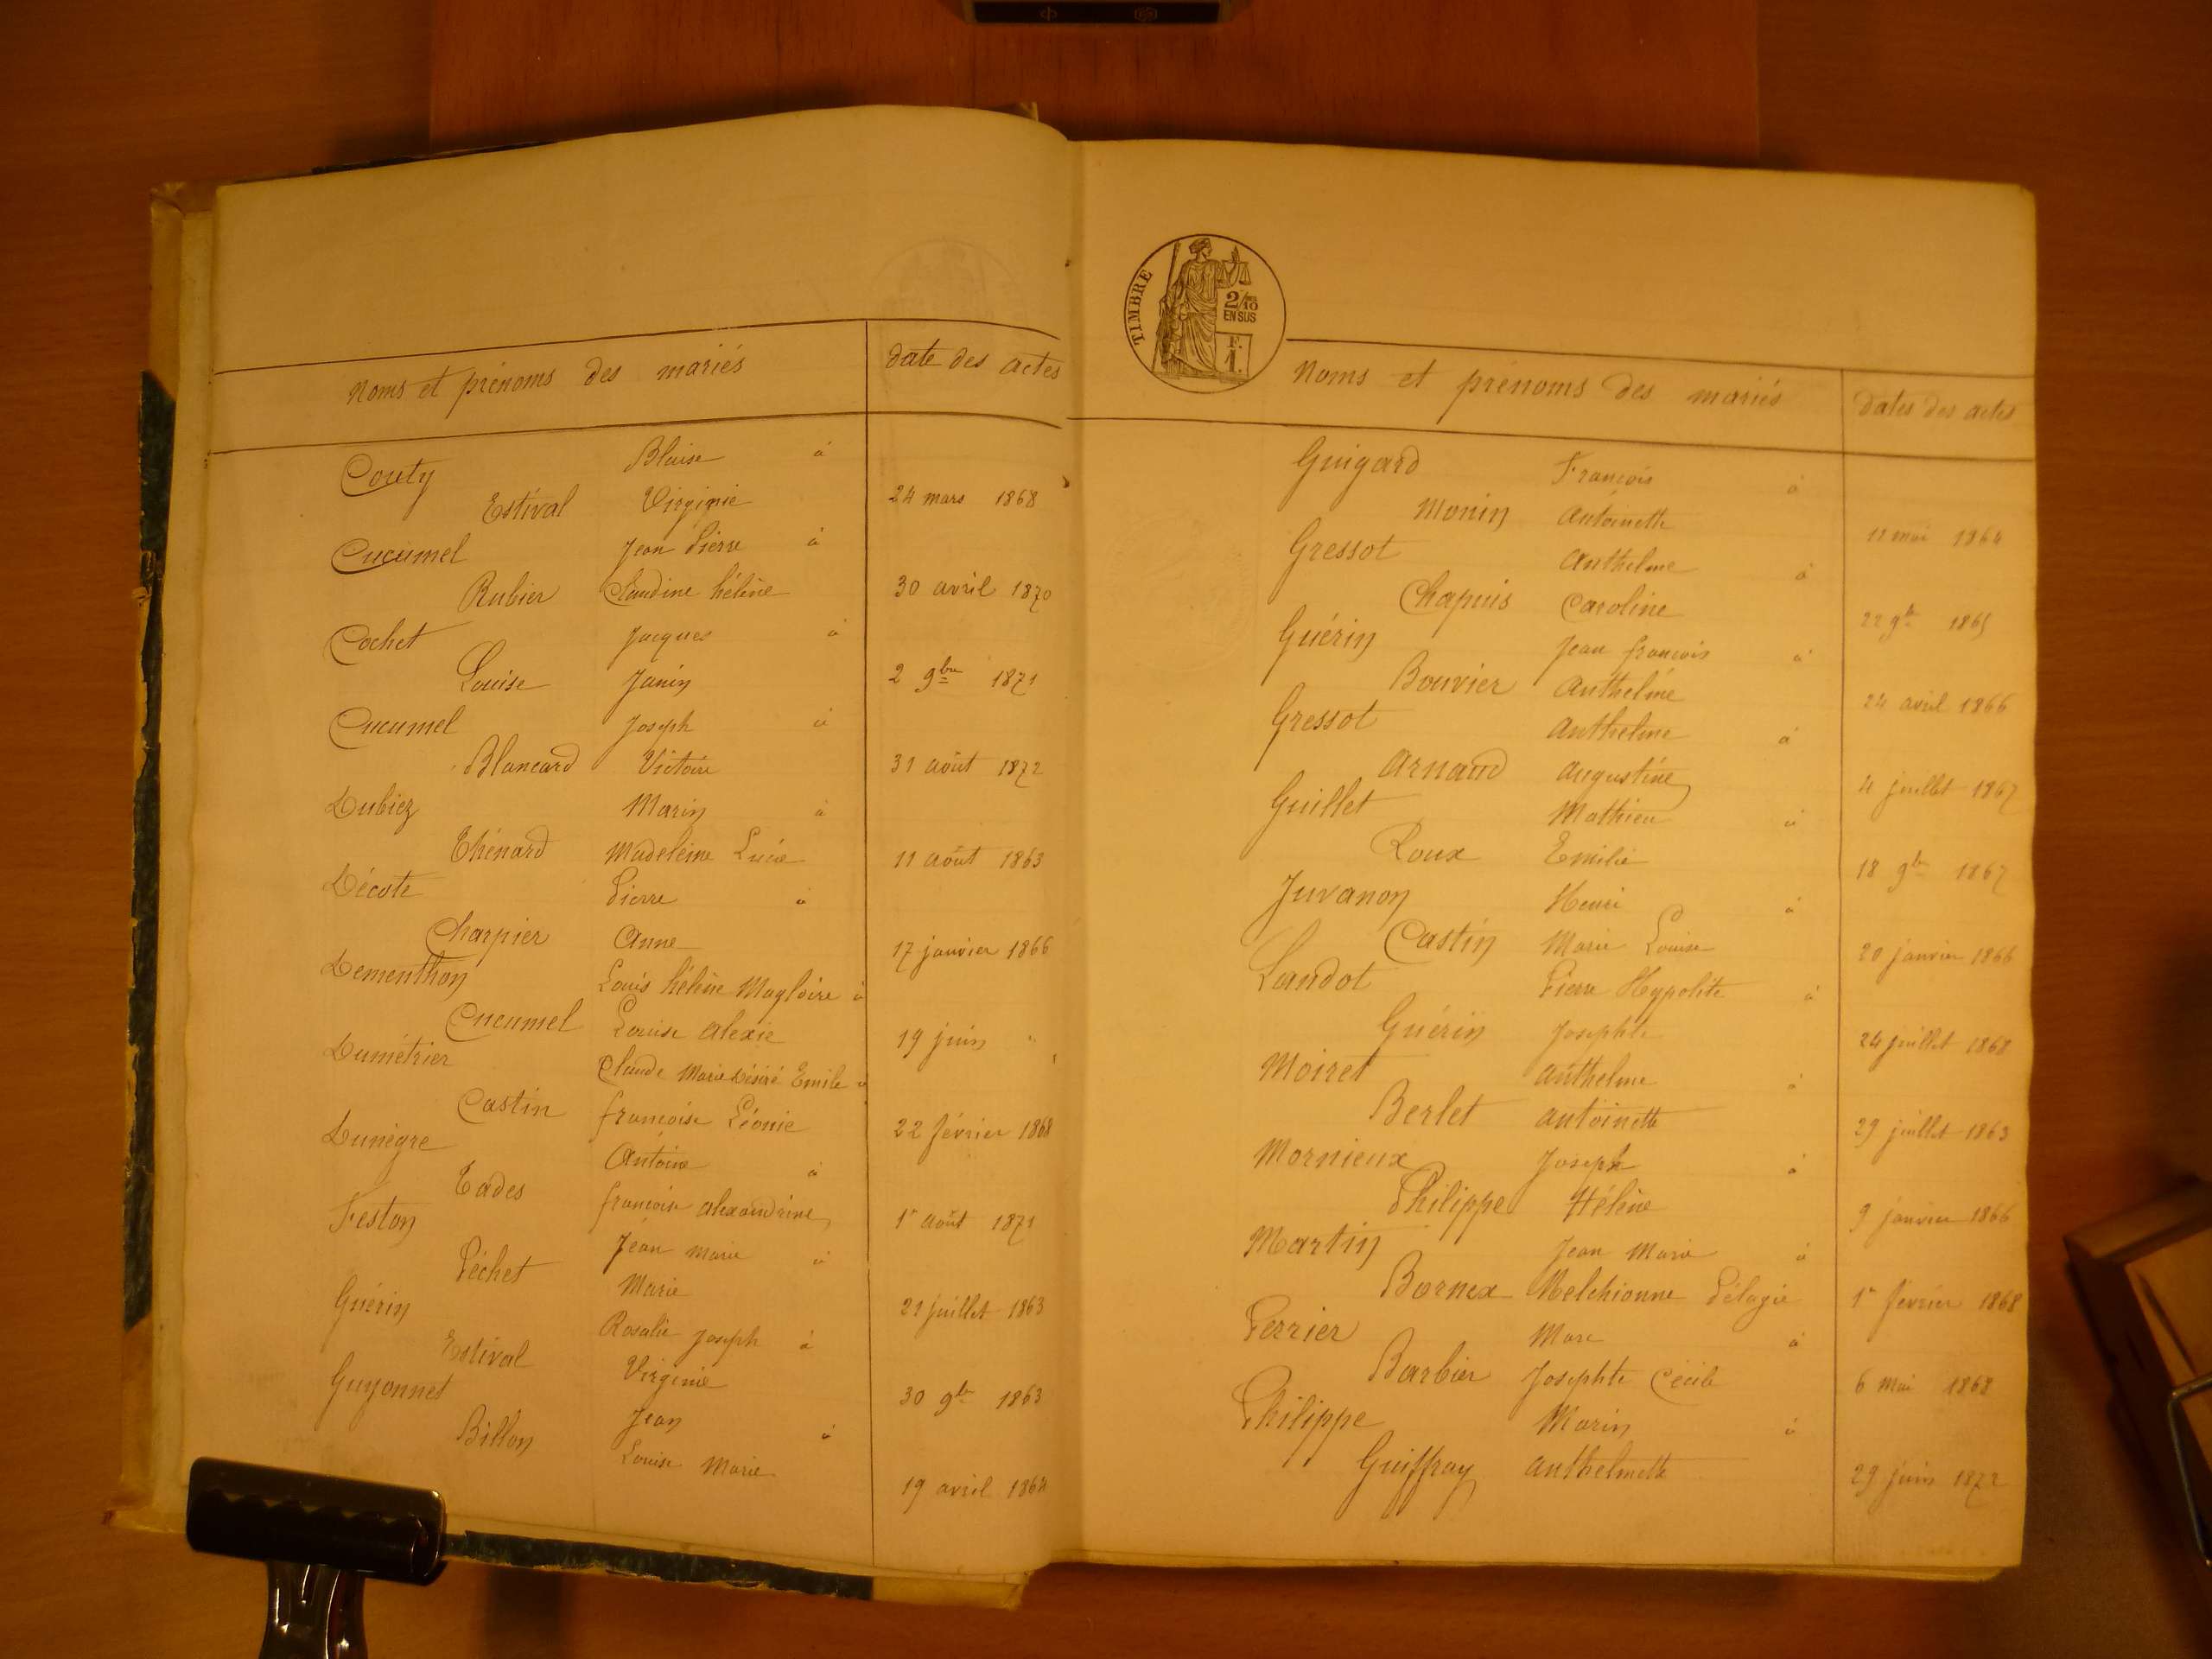 Noms et prénoms des mariés date des actes
Couty Blaise à
Estival Virginie 24 mars 1868
Cucumel Jean Pierre à
Rubier Claudine hélène 30 avril 1870
Cochet Jacques à
Louise Janin 2 9bre 1871
Cucumel Joseph à
Blancard Victoire 31 août 1872
Dubiez Marin à
Thénard Madeleine Lucie 11 août 1863
Décote Pierre à
Charpier Anne 17 janvier 1866
Dementhon Louis hélène Magloire à
Cucumel Louise alexie 19 juin "
Dumétrier Claude Marie Désiré Emile à
Castin françoise Léonie 22 février 1868
Dunègre Antoine à
Eades françoise alexandrine 1r août 1871
Feston Jean marie à
Péchet Marie 21 juillet 1863
Guérin Rosalie joseph à
Estival Virginie 30 9b 1863
Guyonnet Jean à
Billon Louise Marie 19 avril 1864
TIMBRE
2/10
EN SUS
F.
1.
Noms et prénoms des mariés dates des actes
Guigard François à
Monin antoinette 11 mai 1864
Gressot anthelme à
Chapuis Caroline 22 9b 1865
Guérin Jean françois à
Bouvier anthelme 24 avril 1866
Gressot anthelme à
arnaud augustine 4 juillet 1867
Guillet Mathieu à
Roux Emilie 18 9b 1867
Juvanon Henri à
Castin Marie Louise 20 janvier 1866
Landot Pierre Hypolite à
Guérin Josephte 24 juillet 1868
Moiret anthelme à
Berlet antoinette 29 juillet 1863
Mornieux Joseph à
Philippe Hélène 9 janvier 1866
Martin Jean Marie à
Bornex Melchionne Pélagie 1r février 1868
Perrier Marc à
Barbier Josephte Cécile 6 mai 1868
Philippe Marin à
Guiffray anthelmette 29 juin 1872